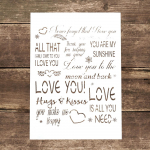 I never forget that I love you
ALL THAT
thank you for
helping me
YOU ARE MY
SUNSHINE
I LOVE YOU
I love you to the
moon and back
LOVE YOU!
Hugs & Kisses
LOVE
IS ALL YOU
NEED
you make me
happy